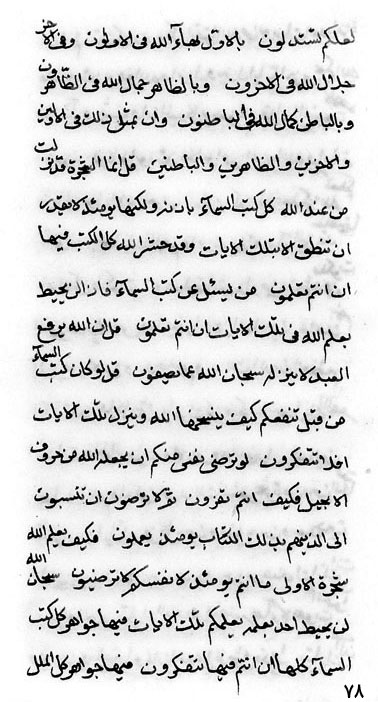 لعلكم تستدلون بالاول بهاء الله في الاولون وفي الاخر
جلال الله في الاخرون وبالظاهر جمال الله في الظاهرون
وبالباطن كمال الله في الباطنون وان بمثل ذلك في الاولين
والاخرين والظاهرين والباطنين قل انما الشجرة قد نزلت
من عند الله كل كتب السماء باذنه ولكنها يومئذ لا تقدر
ان تنطق الا بتلك الايات وقد حشر الله كل الكتب فيها
ان انتم تعلمون من يسئل عن كتب السماء فاذا لن يحيط
بعلم الله في تلك الايات ان انتم تعلمون قل ان الله يرفع
العبد لا ينزله سبحان الله عما يصفون قل لو كان كتب السماء
من قبل تنفعكم كيف ينسخها الله وينزل تلك الايات
افلا تتفكرون لو ترضى نفس منكم ان يجعله الله من حروف
الانجيل فكيف انتم تفرون لا ترضون ان تنسبون
الى الذينهم بذلك الكتاب يومئذ يعملون فكيف يعلم الله
شجرة الاولى ما انتم يومئذ لانفسكم لا ترضيون سبحان الله
لن يحيط احد بعلمه يعلمكم تلك الايات فيها جواهر كل كتب
السماء كلها ان انتم فيها تتفكرون فيها جواهر كل الملل
٧٨